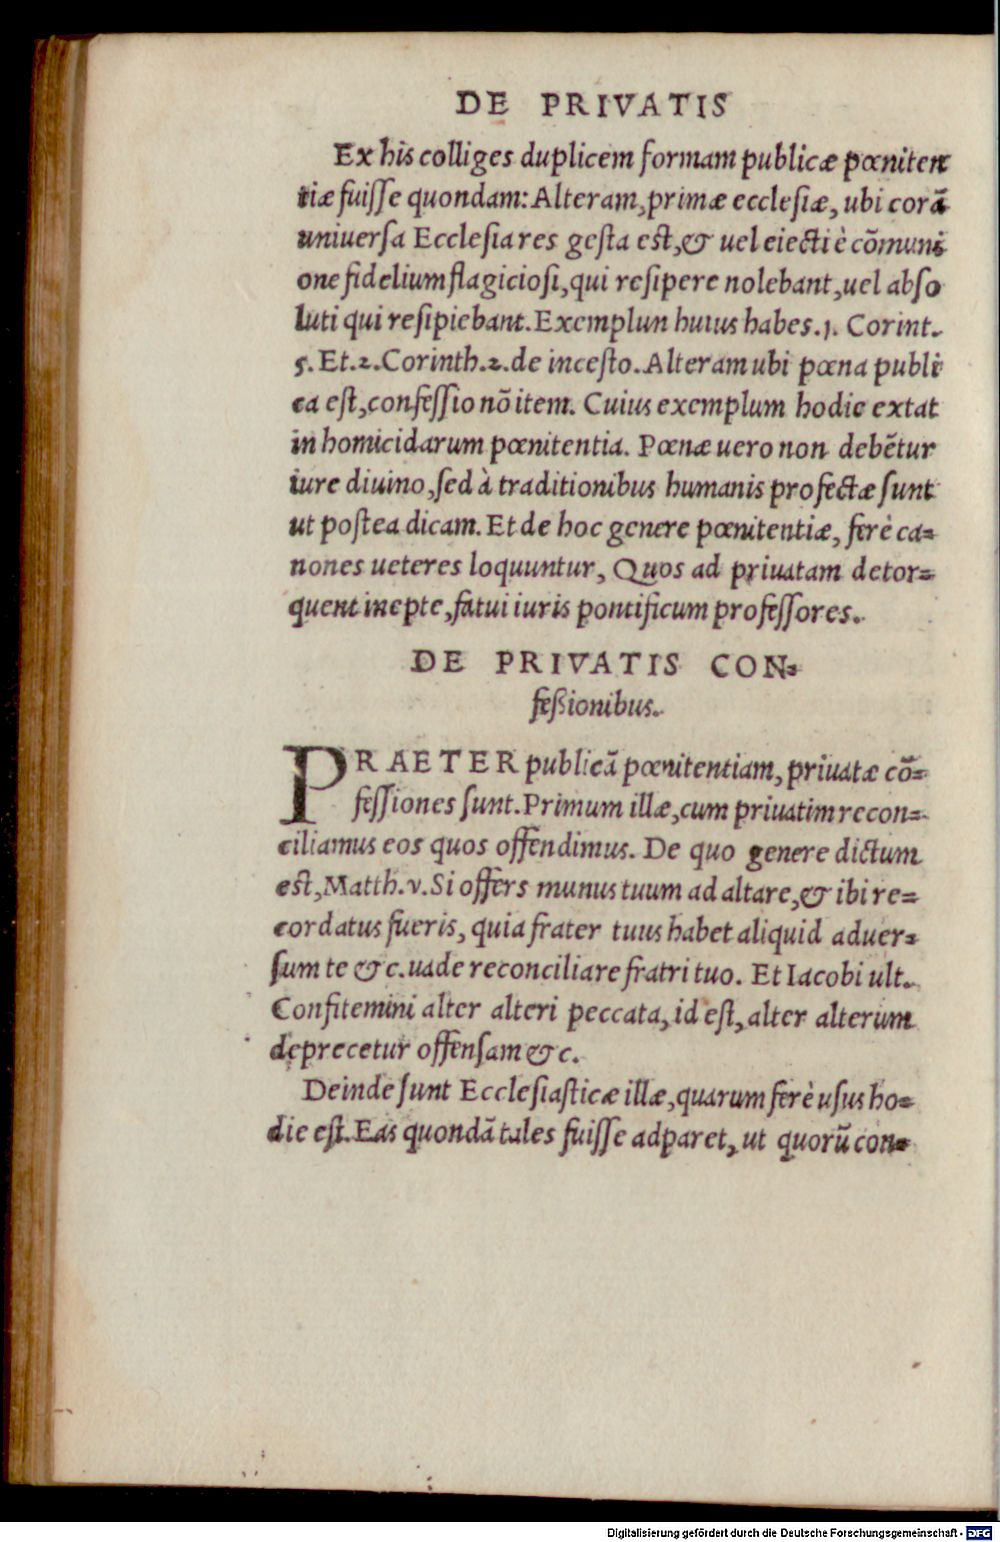 DE PRIVATIS
Ex his colliges duplicem formam publicæ pœniten
tiæ fuisse quondam: Alteram, primæ ecclesiæ, ubi corã
uniuersa Ecclesia res gesta est, & uel eiecti è cõmuni
one fidelium flagiciosi, qui resipere nolebant, uel abso
luti qui resipiebant. Exemplun huius habes. 1. Corint.
5. Et. 2. Corinth. 2. de incesto. Alteram ubi pœna publi
ca est, confessio nõ item. Cuius exemplum hodie extat
in homicidarum pœnitentia. Pœnæ uero non debẽtur
iure diuino, sed à traditionibus humanis profectæ sunt
ut postea dicam. Et de hoc genere pœnitentiæ, ferè ca=
nones ueteres loquuntur, Quos ad priuatam detor=
quent inepte, fatui iuris pontificum professores.
DE PRIVATIS CON=
feßionibus.
PRAETER publicã pœnitentiam, priuatæ cõ=
fessiones sunt. Primum illæ, cum priuatim recon=
ciliamus eos quos offendimus. De quo genere dictum
est, Matth. v. Si offers munus tuum ad altare, & ibi re=
cordatus fueris, quia frater tuus habet aliquid aduer=
sum te &c. uade reconciliare fratri tuo. Et Iacobi ult.
Confitemini alter alteri peccata, id est, alter alterum
deprecetur offensam &c.
Deinde sunt Ecclesiasticæ illæ, quarum ferè usus ho=
die est. Eas quondã tales fuisse adparet, ut quorũ con=
Digitalisierung gefördert durch die Deutsche Forschungsgemeinschaft - DFG